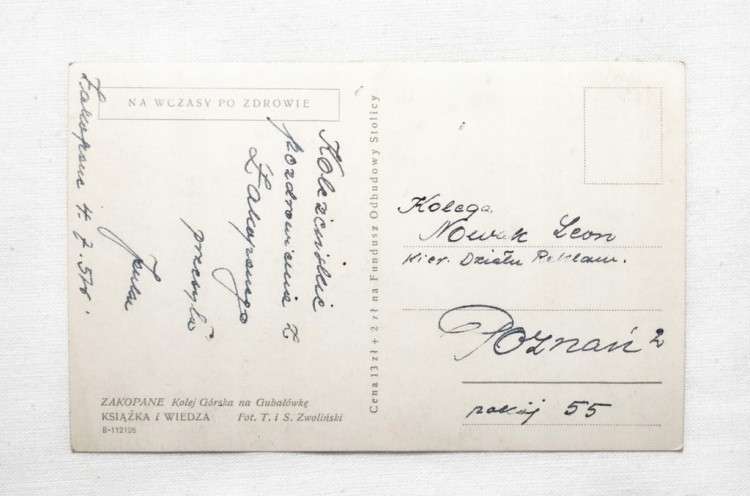 NA WCZASY PO ZDROWIE
Zakopane 4.7.51r.
Koleżeńskie
pozdrowienia z
Zakopanego
przesyła
ZAKOPANE Kolej Górska na Gubałówkę
KSIĄŻKA i WIEDZA Fot. T. i S. Zwoliński
B-112126
Cena 13 zł + 2 zł na Fundusz Odbudowy Stolicy
Kolega
Nowak Leon
Kier. Działu Reklam.
Poznań 2
pokój 55